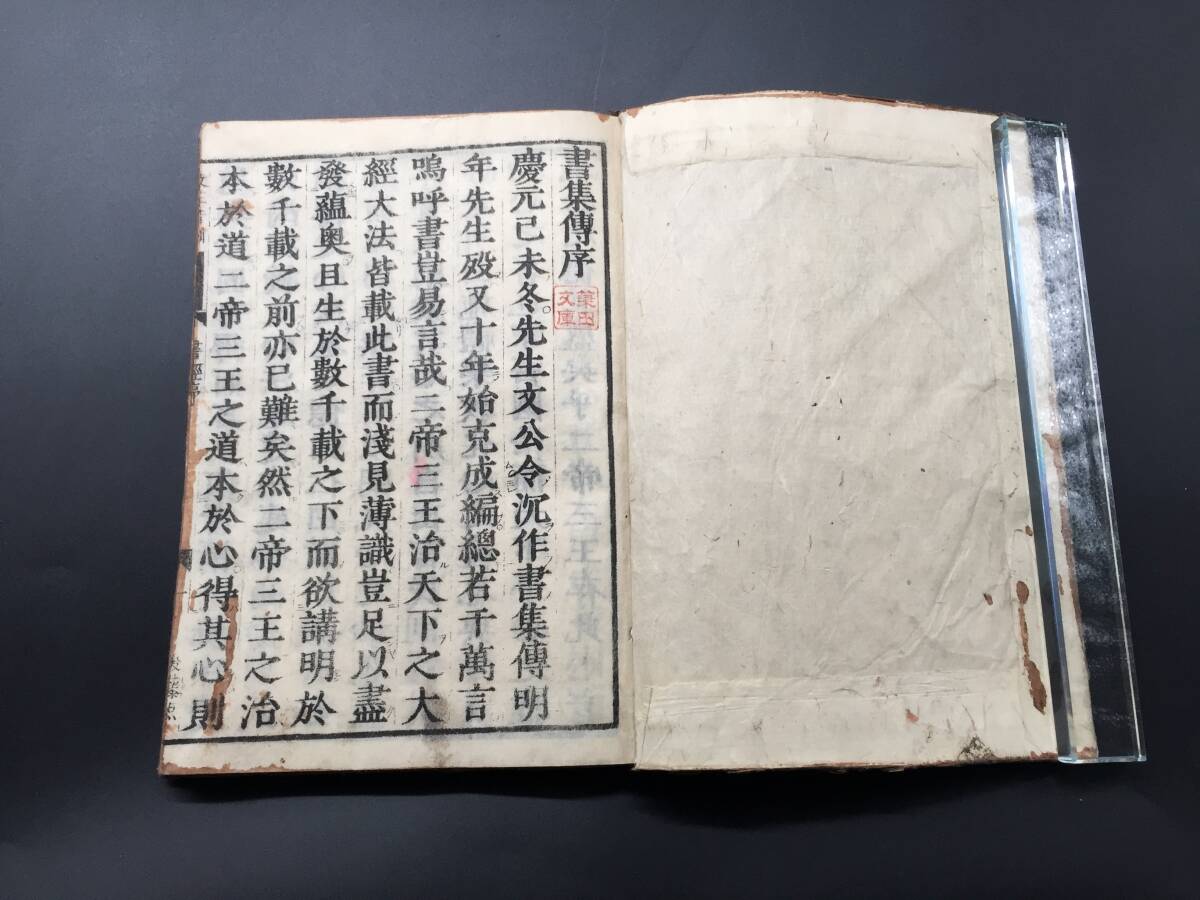 書集傳序
慶元己未冬先生文公令沉作書集傳明
年先生歿又十年始克成編總若干萬言
嗚呼書豈易言哉二帝三王治天下之大
經大法皆載此書而淺見薄識豈足以盡
發蘊奥且生於數千載之下而欲講明於
數千載之前亦已難矣然二帝三王之治
本於道二帝三王之道本於心得其心則
書經序
文庫